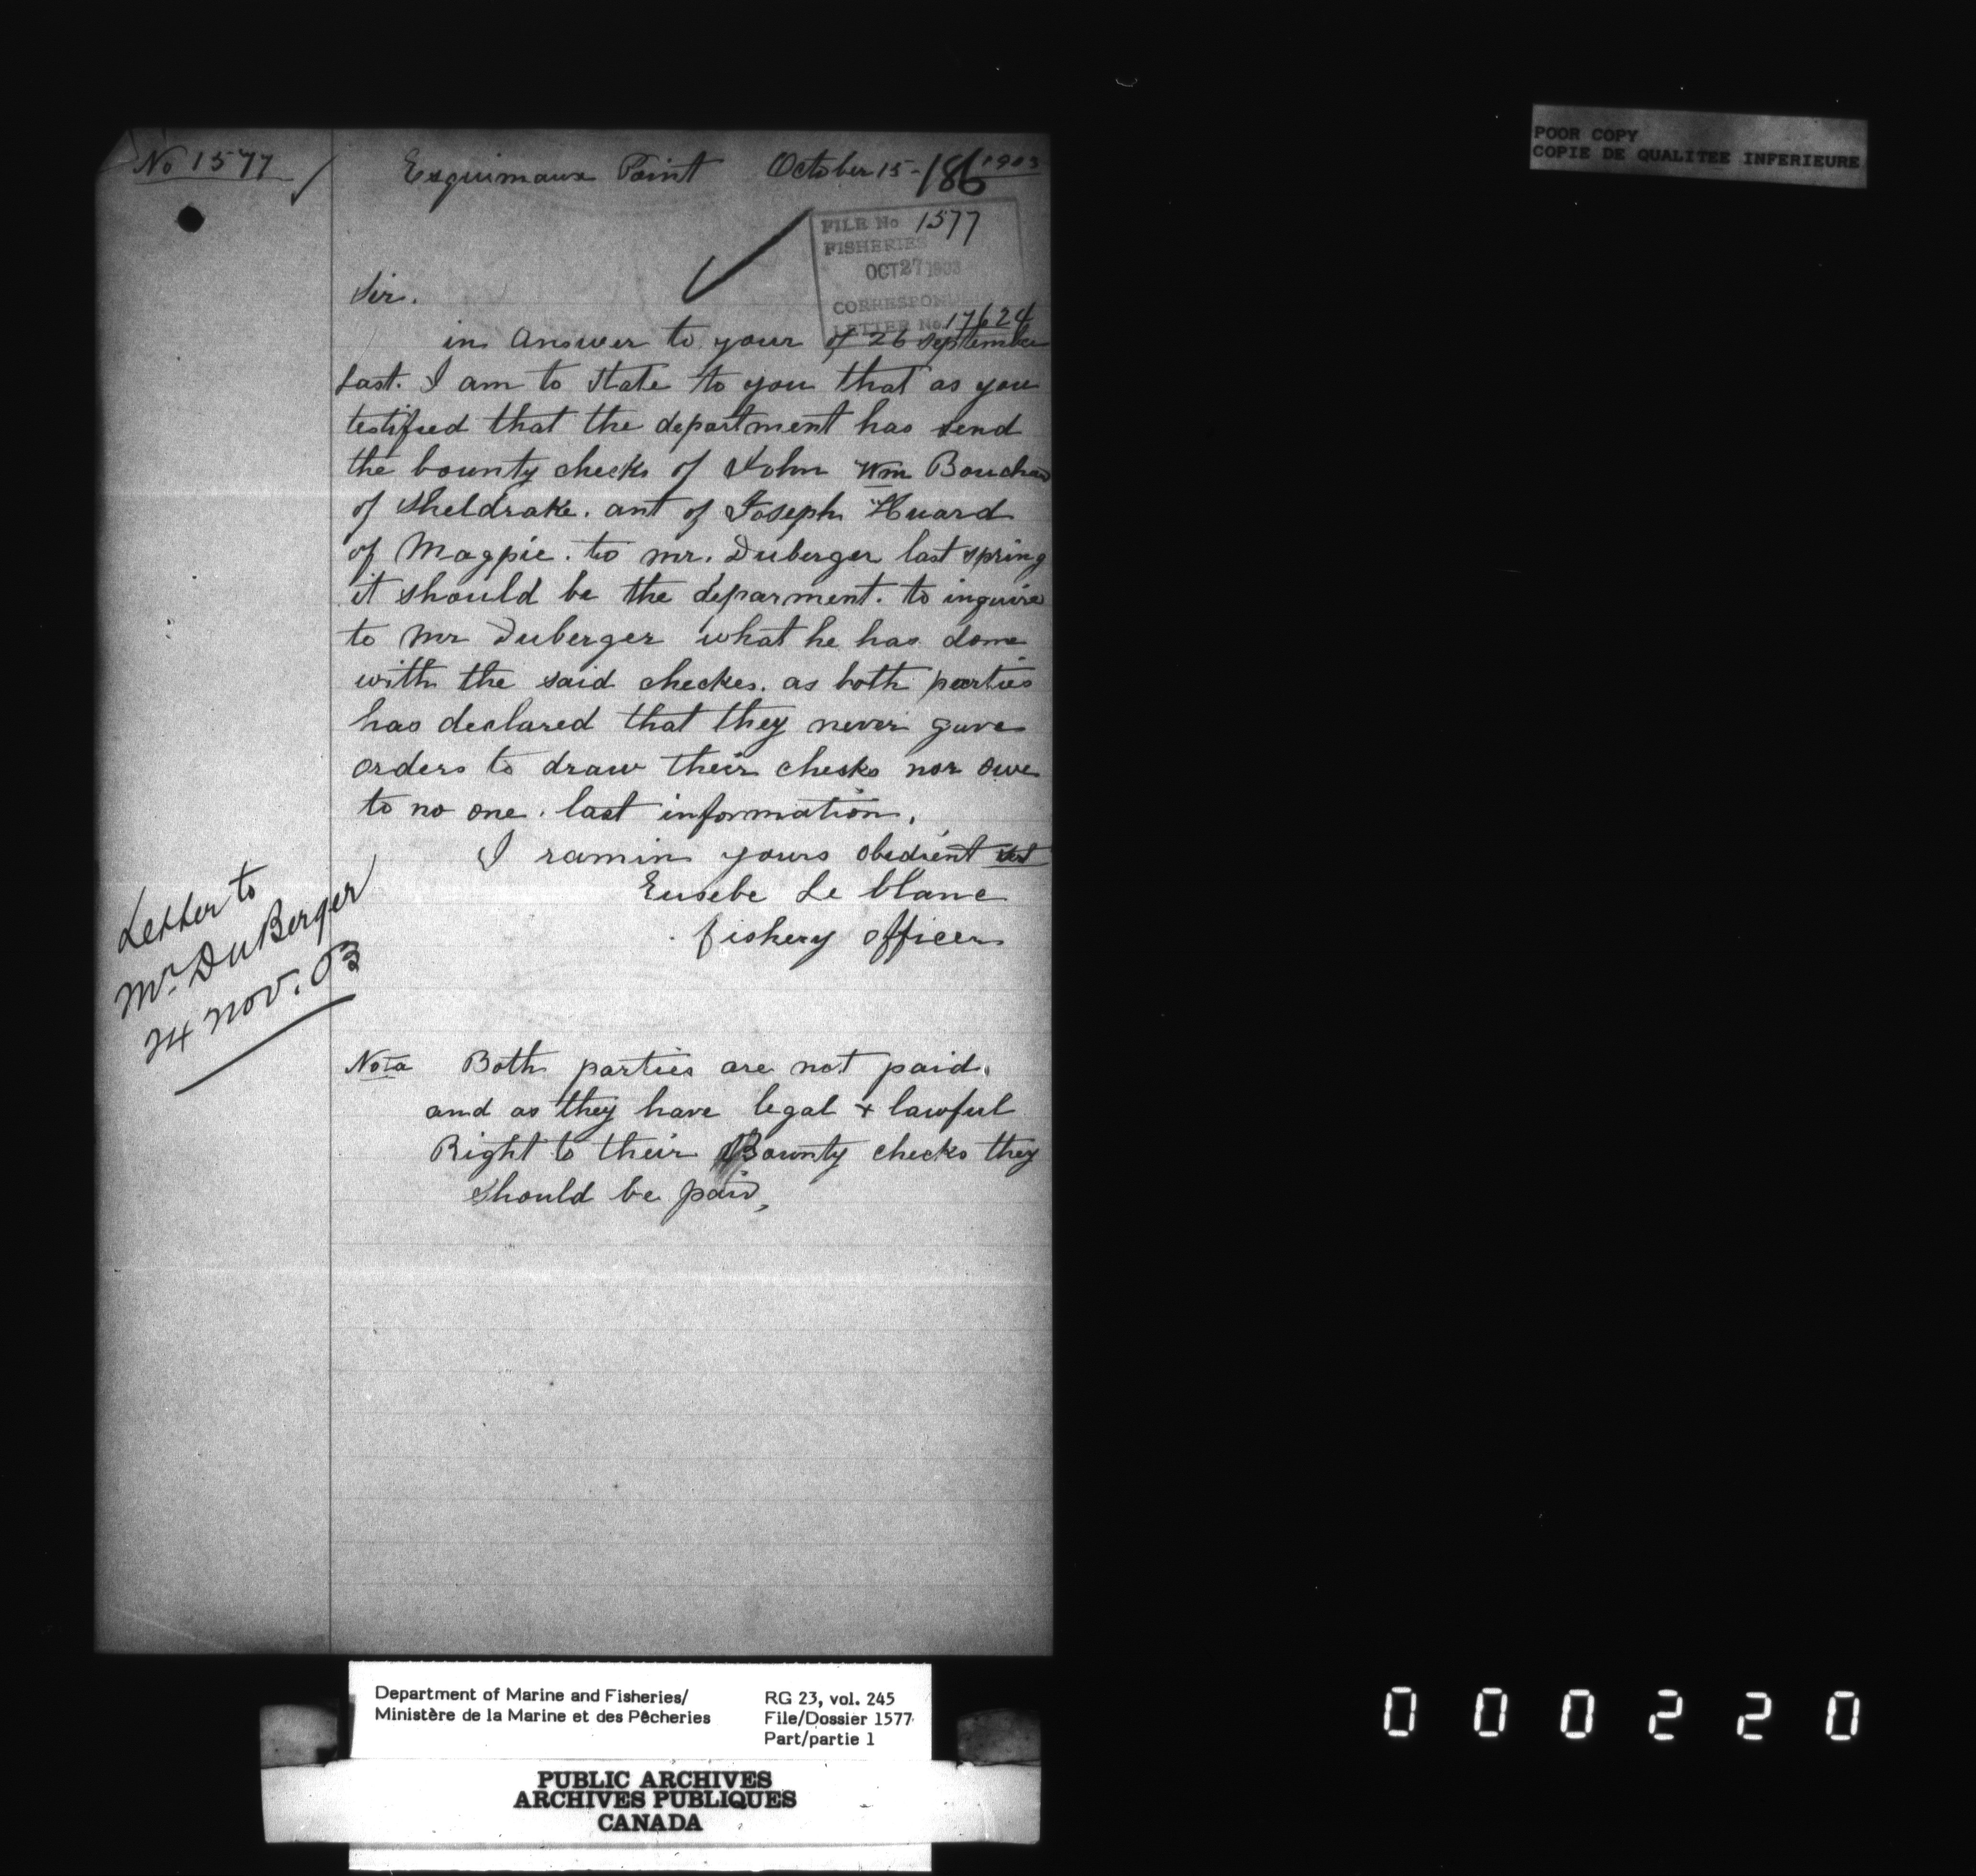 No 1577
Esquimaux Point October 15 - 1903
186
POOR COPY
COPIE DE QUALITEE INFERIEURE
FILE No 1577
FISHERIES
OCT 27 1903
LETTER No. 17624
Sir.
in answer to your of 26 september
Last. I am to state to you that as you
testified that the department has send
the bounty checks of John Wm
of Sheldrake. ant of Joseph Huard
of Magpie. to mr. Duberger last spring
it should be the deparment. to inquire
to Mr Duberger what he has done
with the said checkes. as both parties
has declared that they never gave
orders to draw their checks nor owe
to no one. last information.
I ramin yours obedient
Eusebe Le blanc
fishery officer
Letter to
Mr. DuBerger
24 Nov. 03
Nota Both parties are not paid.
and as they have legal + lawful
Right to their Bounty checks they
should be paid,
Department of Marine and Fisheries/
Ministère de la Marine et des Pêcheries
RG 23, vol. 245
File/Dossier 1577
Part/partie 1
PUBLIC ARCHIVES
ARCHIVES PUBLIQUES
CANADA
000220